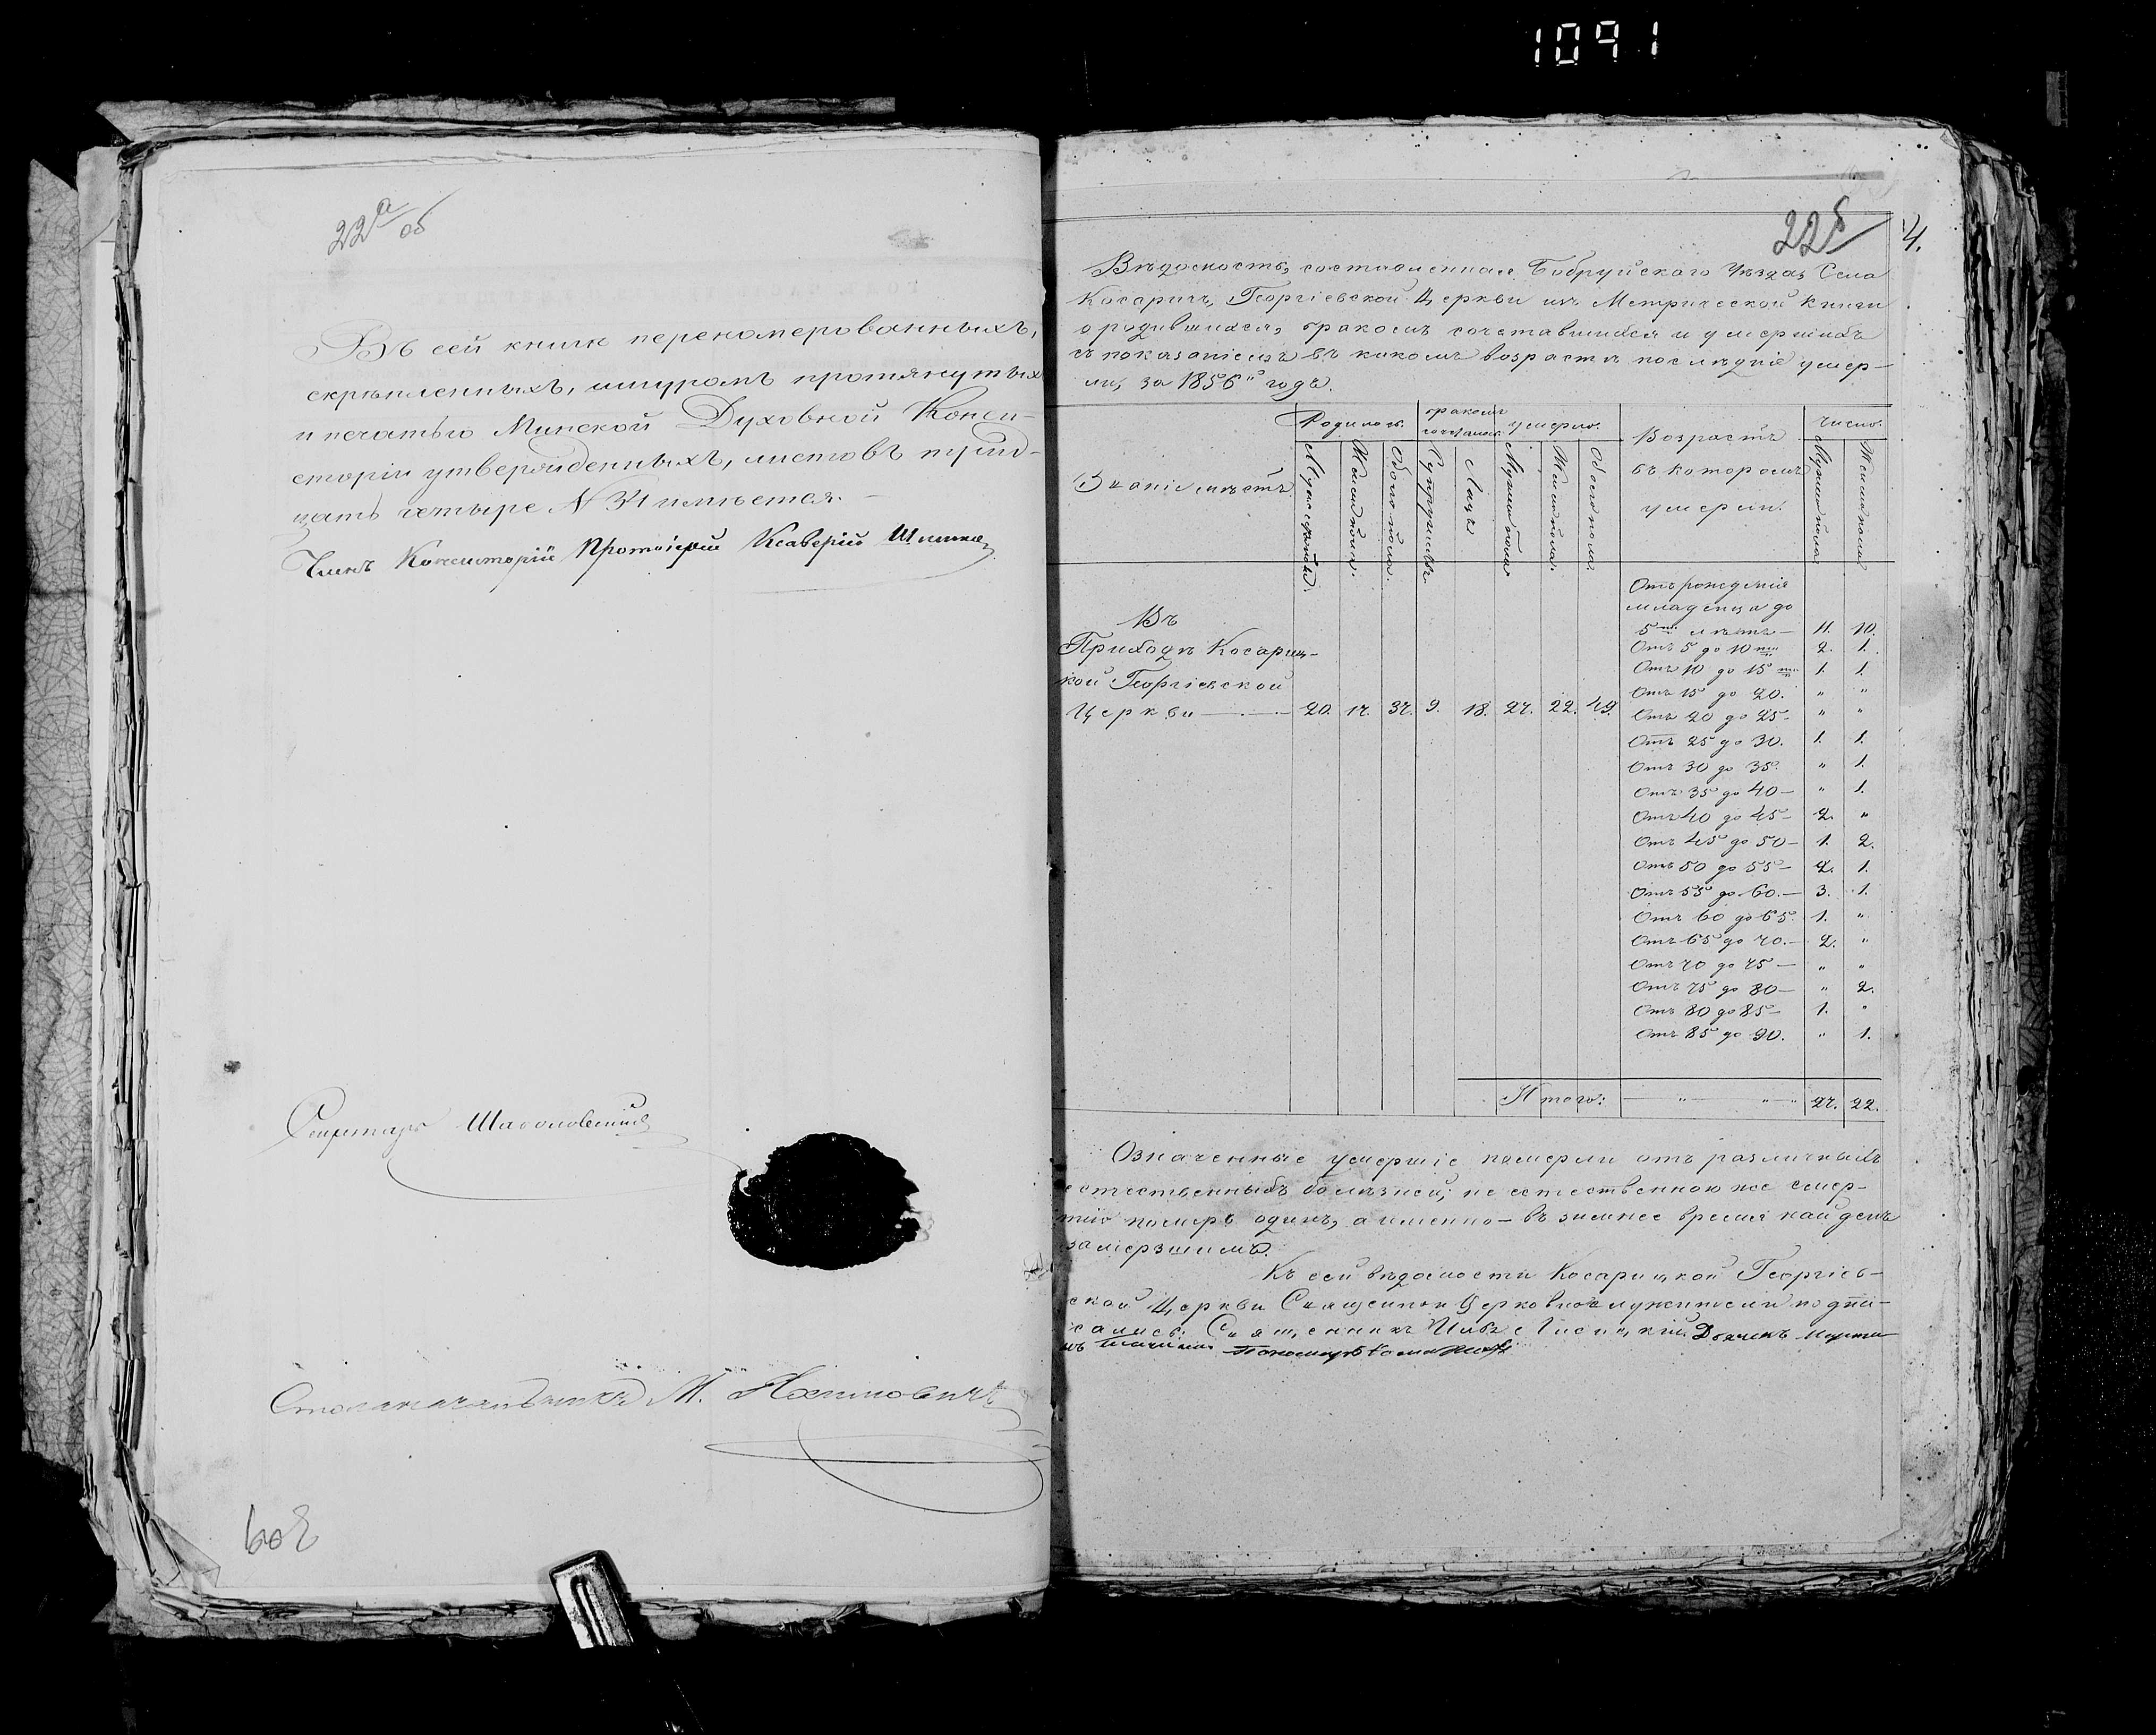 1091
22а/об
Въ сей книгѣ переномерованныхъ,
скрѣпленныхъ, шнуромъ протянутыхъ
и печатью Минской Духовной Конси-
сторіи утвержденныхъ, листовъ трид-
цать четыре № 34 имѣется.
Членъ Консисторіи Протоіерей Ксаверій
Секретарь
Столоначальникъ М.
22б
4.
Вѣдомость, составленная Бобруйскаго Уѣзда, Села
Косаричъ, Георгіевской Церкви изъ Метрической книги
о родившихся, бракомъ сочетавшихся и умершихъ
съ показаніемъ въ какомъ возрастѣ послѣдніе умер-
ли, за 1856й годъ.
Званіе мѣстъ
Родилось.
бракомъ сочеталось
умерло.
Возрастъ въ которомъ умерли.
число.
Мужеска пола.
Женска пола.
Обоего пола.
Супружествъ.
Лицъ
Мужска пола
Женска пола.
Обоего пола.
Мужска пола
Женска пола
Въ
Приходѣ Косариц-
кой Георгіевской
Церкви — 20. 17. 37. 9. 18. 27. 22. 49.
Отъ рожденія
младенца до
5ти лѣтъ — 11. 10.
Отъ 5 до 10ти 2. 1.
Отъ 10 до 15ти 1. 1.
Отъ 15 до 20. " "
Отъ 20 до 25- " "
Отъ 25 до 30. 1. 1.
Отъ 30 до 35. " 1.
Отъ 35 до 40- " 1.
Отъ 40 до 45- 2. "
Отъ 45 до 50- 1. 2.
Отъ 50 до 55- 2. 1.
Отъ 55 до 60.- 3. 1.
Отъ 60 до 65. 1. "
Отъ 65 до 70.- 2. "
Отъ 70 до 75 - " "
Отъ 75 до 80- " 2.
Отъ 80 до 85- 1. "
Отъ 85 до 90. " 1.
Итого: — " — " — 27. 22.
Означенные умершіе померли отъ различныхъ
естественныхъ болѣзней; не естественною же смер-
тію померъ одинъ, а именно - въ зимнее время найденъ
замерзшимъ.
Къ сей вѣдомости Косарицкой Георгіев-
ской Церкви Священно и Церковнослужители подпи-
сались: Священникъ Дьячекъ
Пономарь